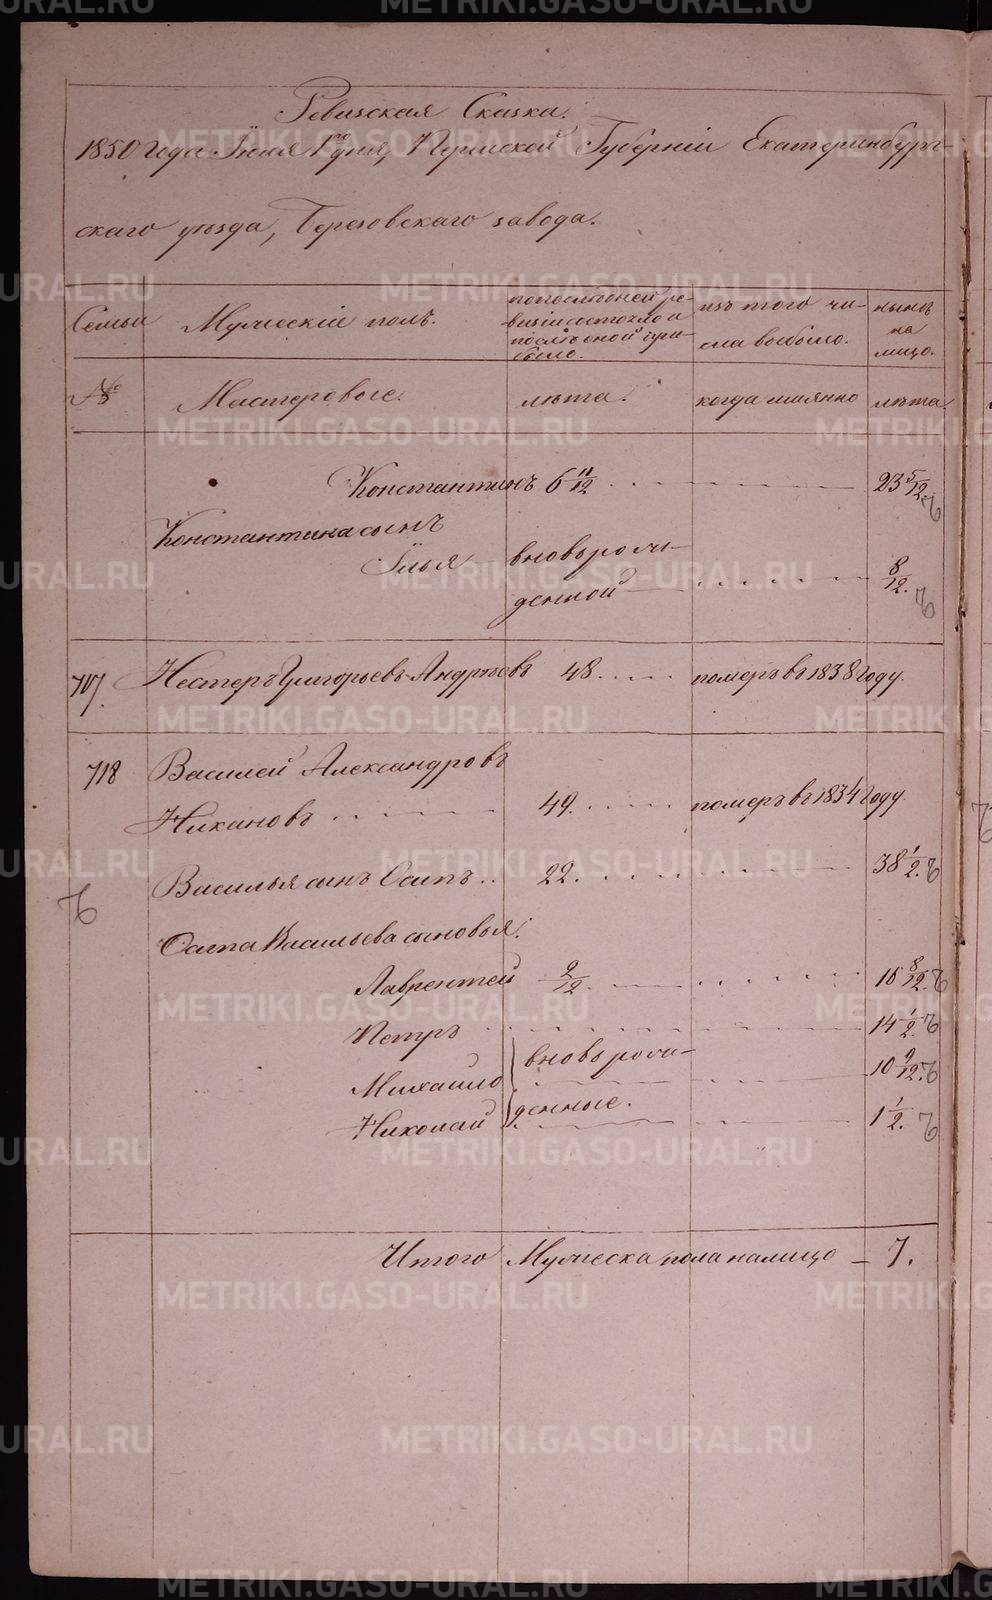 Ревизская Сказка.
1850 года Iюля 1 го дня, Пермской Губернiи Екатеринбург-
скаго уѣзда, Березовскаго завода.
Семьи
Мужескiй полъ.
по последней ре-
визiи состояло и
послѣ оной при-
было.
изъ того чи-
сла выбыло.
нынѣ
на
лицо.
№
Мастеровые.
лѣта.
когда имянно
лѣта.
Константинъ 6 11/12 23 5/12.
Константина сынъ
Iлья
вновьрож-
денной
8/12.
707. Нестеръ Григорьевъ Андрѣевъ 48. померъ въ 1838 году.
718 Василей Александровъ
Никановъ 49. померъ въ 1834 году.
Василья сынъ Осипъ 22. 38 1/2.
Осипа Васильева сыновья:
Лаврентей 2/12. 16 8/12.
Петръ 14 1/2.
Михайло вновьрож- 10 9/12.
Николай денные. 1 1/2.
Итого Мужеска пола налицо – 7.
METRIKI.GASO-URAL.RU